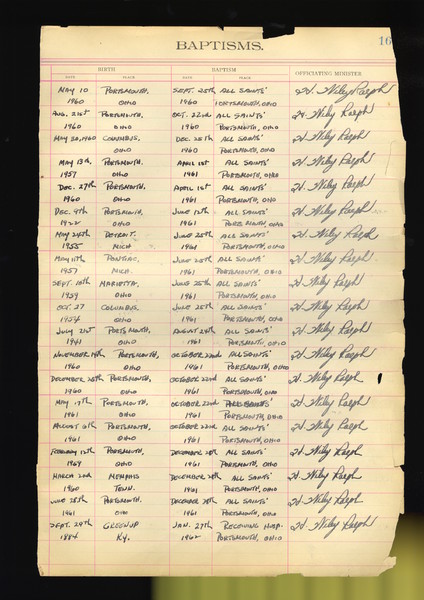 16
BAPTISMS.
BIRTH BAPTISM OFFICIATING MINISTER
DATE PLACE DATE PLACE
MAY 10 PORTSMOUTH, SEPT. 25th ALL SAINTS' H. Wiley Ralph
1960 OHIO 1960 PORTSMOUTH, OHIO
AUG. 21st PORTSMOUTH, OCT. 22nd ALL SAINTS' H. Wiley Ralph
1960 OHIO 1960 PORTSMOUTH, OHIO
MAY 30, 1960 COLUMBUS, DEC. 25th ALL SAINTS' H. Wiley Ralph
OHIO 1960 PORTSMOUTH, OHIO
MAY 13th, PORTSMOUTH, APRIL 1st ALL SAINTS' H. Wiley Ralph
1957 OHIO 1961 PORTSMOUTH, OHIO
DEC. 27th PORTSMOUTH, APRIL 1st ALL SAINTS' H. Wiley Ralph
1960 OHIO 1961 PORTSMOUTH, OHIO
DEC. 9th PORTSMOUTH, JUNE ALL SAINTS' H. Wiley Ralph
OHIO 1961 PORTSMOUTH, OHIO
MAY 24th DETROIT, JUNE 25th ALL SAINTS' H. Wiley Ralph
1955 MICH 1961 PORTSMOUTH, OHIO
MAY 11th PONTIAC, JUNE 25th ALL SAINTS' H. Wiley Ralph
1957 MICH. 1961 PORTSMOUTH, OHIO
SEPT. 10th MARIETTA, JUNE 25th ALL SAINTS' H. Wiley Ralph
1959 OHIO 1961 PORTSMOUTH, OHIO
OCT. 27 COLUMBUS, JUNE 25th ALL SAINTS' H. Wiley Ralph
OHIO 1961 PORTSMOUTH, OHIO
JULY 21st PORTSMOUTH, AUGUST 24th ALL SAINTS' H. Wiley Ralph
1941 OHIO 1961 PORTSMOUTH, OHIO
NOVEMBER 19th PORTSMOUTH, OCTOBER 22nd ALL SAINTS' H. Wiley Ralph
1960 OHIO 1961 PORTSMOUTH, OHIO
DECEMBER PORTSMOUTH, OCTOBER 22nd ALL SAINTS' H. Wiley Ralph
1960 OHIO 1961 PORTSMOUTH, OHIO
MAY 17th PORTSMOUTH, OCTOBER 22nd ALL SAINTS' H. Wiley Ralph
1961 OHIO 1961 PORTSMOUTH, OHIO
AUGUST 6th PORTSMOUTH, OCTOBER 22nd ALL SAINTS' H. Wiley Ralph
1961 OHIO 1961 PORTSMOUTH, OHIO
FEBRUARY 12th PORTSMOUTH, DECEMBER 24th ALL SAINTS' H. Wiley Ralph
1959 OHIO 1961 PORTSMOUTH, OHIO
MARCH 22nd MEMPHIS DECEMBER 24th ALL SAINTS' H. Wiley Ralph
1960 TENN. 1961 PORTSMOUTH, OHIO
JUNE 28th PORTSMOUTH. DECEMBER 24th ALL SAINTS' H. Wiley Ralph
1961 OHIO 1961 PORTSMOUTH, OHIO
SEPT. 29th GREENUP JAN. 27th RECEIVING HOSP. H. Wiley Ralph
1884 KY. 1962 PORTSMOUTH, OHIO